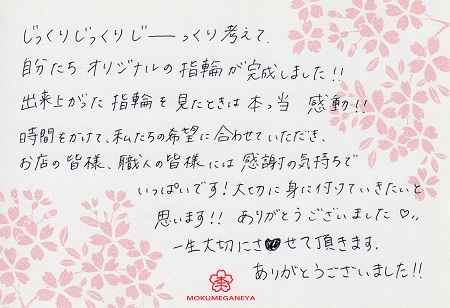 じっくりじっくりじーーっくり考えて、
自分たちオリジナルの指輪が完成しました!!
出来上がった指輪を見たときは本っ当 感動!!
時間をかけて、私たちの希望に合わせていただき、
お店の皆様、職人の皆様には感謝の気持ちで
いっぱいです!大切に身に付けていきたいと
思います!!ありがとうございました♡。。
一生大切にさせて頂きます。
ありがとうございました!!
MOKUMEGANEYA